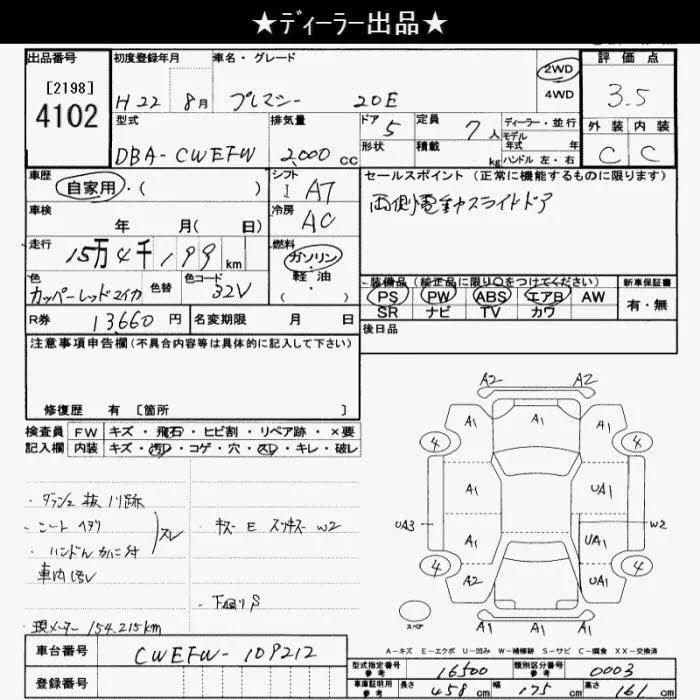 ★ディーラー出品★
出品番号
[2198]
4102
初度登録年月
H22 8月
車名・グレード
プレマシー 20E
2WD
4WD
評価点
3.5
型式
DBA-CWEFW
排気量
2,000 cc
ドア 5
形状
定員 7人
積載 kg
ディーラー・並行
モデル
年式 年
ハンドル 左・右
外装 内装
C C
車歴
自家用・( )
シフト
I AT
セールスポイント(正常に機能するものに限ります)
両側電動スライドドア
車検
年 月( 日)
冷房
AC
走行
15万4千199km
燃料
ガソリン・
軽・油
( )
色
カッパーレッドマイカ
色替
色コード
32V
装備品(純正品に限り○をつけてください)
PS PW ABS エアB AW
SR ナビ TV カワ
新車保証書
有・無
R券 13660円
名変期限 月 日
後日品
注意事項申告欄(不具合内容等は具体的に記入して下さい)
修復歴 有 [箇所 ]
検査員
記入欄
FW キズ・飛石・ヒビ割・リペア跡・×要
内装 キズ・汚レ・コゲ・穴・スレ・キレ・破レ
スレ
W2
現メーター 154,215km
A2 A2
A1 A1 A1
4 4
A1 A1 A1 UA1
UA3 W2
A1 UA1
4 4
A2 A1 UA1
A1 A1 A1
スペア
A-キズ E-エクボ U-凹み W-補修跡 S-サビ C-腐食 XX-交換済
車台番号
CWEFW-109212
登録番号
型式指定番号
参考
16500
類別区分番号
参考
0003
車庫証明用
参考
長さ 458cm 幅 175cm 高さ 161cm